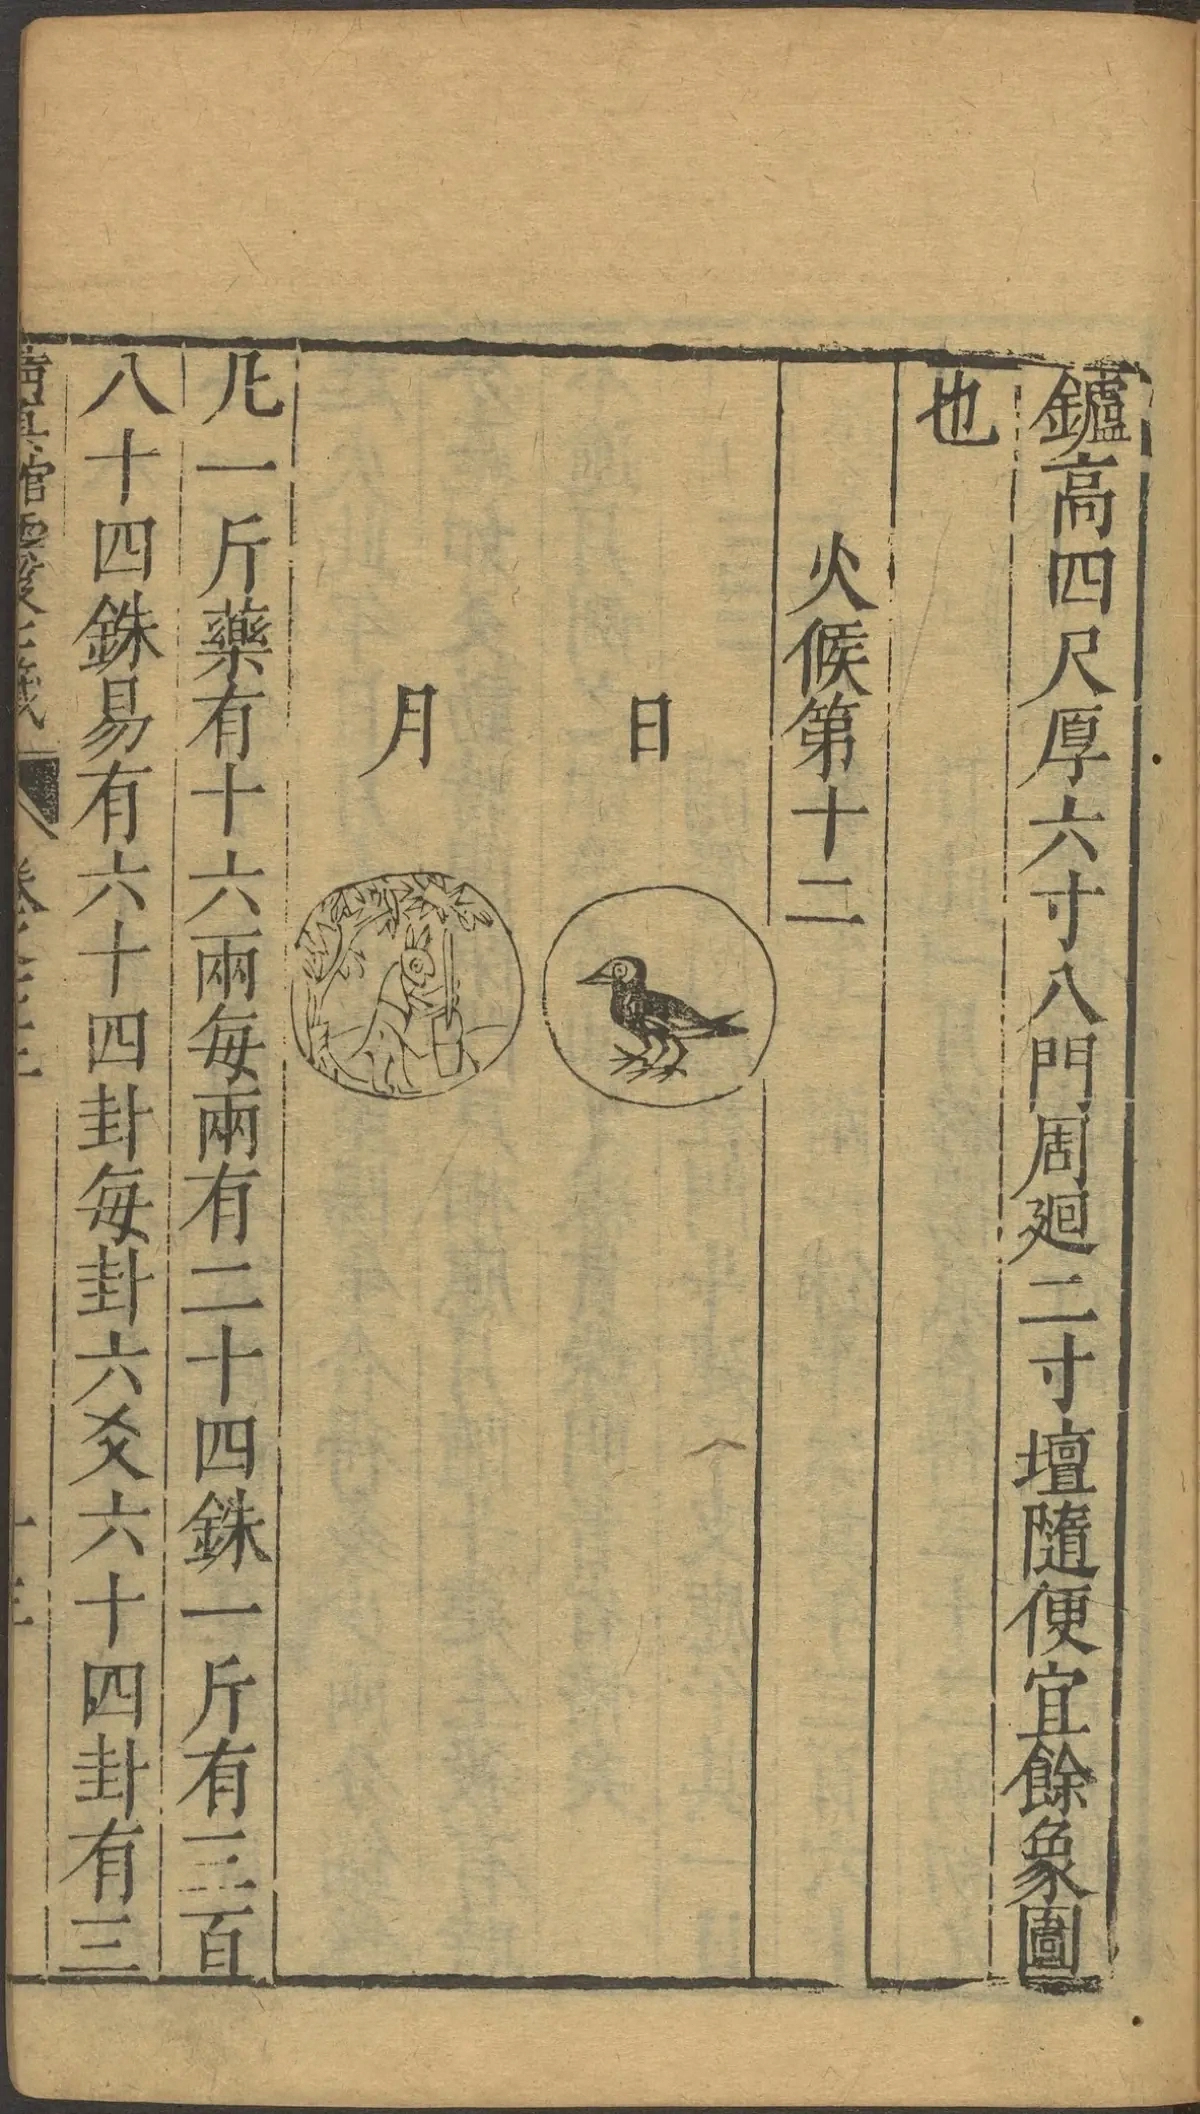 鑪高四尺厚六寸八門周廻二寸壇隨便宜餘象圖
也
火候第十二
日
月
凡一斤藥有十六兩每兩有二十四銖一斤有三百
八十四銖易有六十四卦每卦六爻六十四卦有三